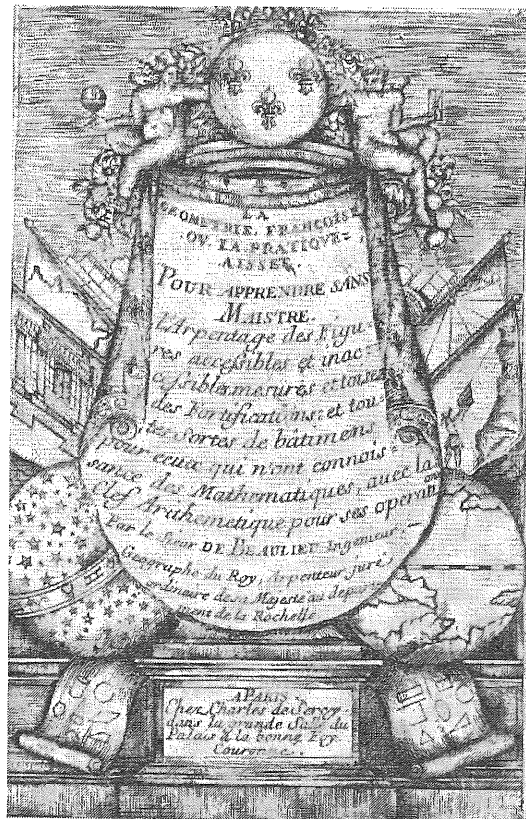 LA
GEOMETRIE FRANCOISE
OV LA PRATIQUE
AISSEE.
POUR APPRENDRE SANS
MAISTRE.
L'Arpentage des Figu-
res accessibles et inac-
cessibles, mesures et toisez
des Fortifications: et tou-
tes Sortes de bâtimens
pour ceux qui n'ont connois-
sance des Mathematiques, avec la
clef Arithemetique pour ses operations
Par le Sieur DE BEAULIEU Ingenieur,
Geographe du Roy, Arpenteur juré
ordinaire de sa Majesté au departe-
ment de la Rochelle
A PARIS.
Chez Charles de Sercy,
dans la grande Salle du
Palais à la bonne Foy
Couronnée.